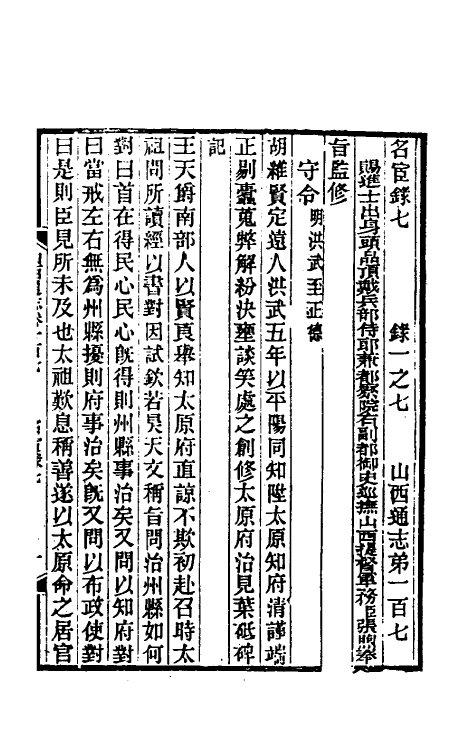 名宦錄七　錄一之七　山西通志第一百七
賜進士出身頭品頂戴兵部侍郎兼都察院右副都御史巡撫山西提督軍務臣張煦奉
旨監修
守令明洪武至正德
胡維賢定遠人洪武五年以平陽同知陞太原知府清謹端
正剔蠹蒐弊解紛決壅談笑處之創修太原府治見葉砥碑
記
王天爵南部人以賢良舉知太原府直諒不欺初赴召時太
祖問所讀經以書對因試欽若昊天文稱旨問治州縣如何
對曰首在得民心民心旣得則州縣事治矣又問以知府對
曰當戒左右無爲州縣擾則府事治矣旣又問以布政使對
曰是則臣見所未及也太祖歎息稱善遂以太原命之居官